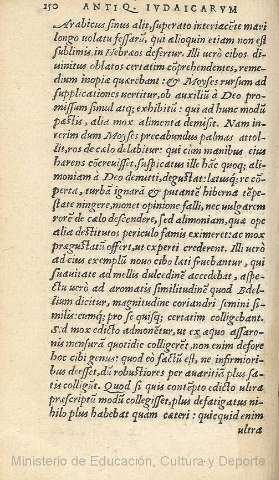 250 ANTIQ. IVDAICARVM
Arabicus sinus alit, superato interiacēte mari
longo uolatu fessarū, qui alioquin etiam non est
sublimis, in Hebræos defertur. Illi uerò cibos di-
uinitus oblatos certatim cōprehendentes, reme-
dium inopiæ quærebant: & Moyses rursum ad
supplicationes uertitur, ob auxiliū à Deo pro-
missum simul atq; exhibitū: qui ad hunc modū
pastis, alia mox alimenta demisit. Nam in-
terim dum Moyses precabundus palmas attol-
lit, ros de cælo delabitur: qui cùm manibus eius
hærens cōcreuisset, suspicatus ille hāc quoq; ali-
moniam à Deo demitti, degustat: lætusq; re cō-
perta, turbā ignarā & putantē hiberna tēpe-
state ningere, monet opinione falli, nec uulgarem
rorē de cælo descendere, sed alimoniā, quæ ope
alia destitutos periculo famis eximeret: ac mox
prægustatū offert, ut experti crederent. Illi uerò
ad eius exemplū nouo cibo læti fruebantur, qui
suauitate ad mellis dulcedinē accedebat, aspe-
ctu uerò ad aromatis similitudinē quod Bdel-
lium dicitur, magnitudine coriandri semini si-
milis: eumq; pro se quisq; certatim colligebant.
Sed mox edicto admonētur, ut ex æquo assaro-
nis mensurā quotidie colligerēt, non enim defore
hoc cibi genus: quod eò factū est, ne infirmiori-
bus deesset, dū robustiores per auaritiā plus sa-
tis colligūt. Quod si quis contēpto edicto ultra
præscriptū modū collegisset, plus defatigatus ni-
hilo plus habebat quàm cæteri: quicquid enim
ultra
Ministerio de Educación, Cultura y Deporte